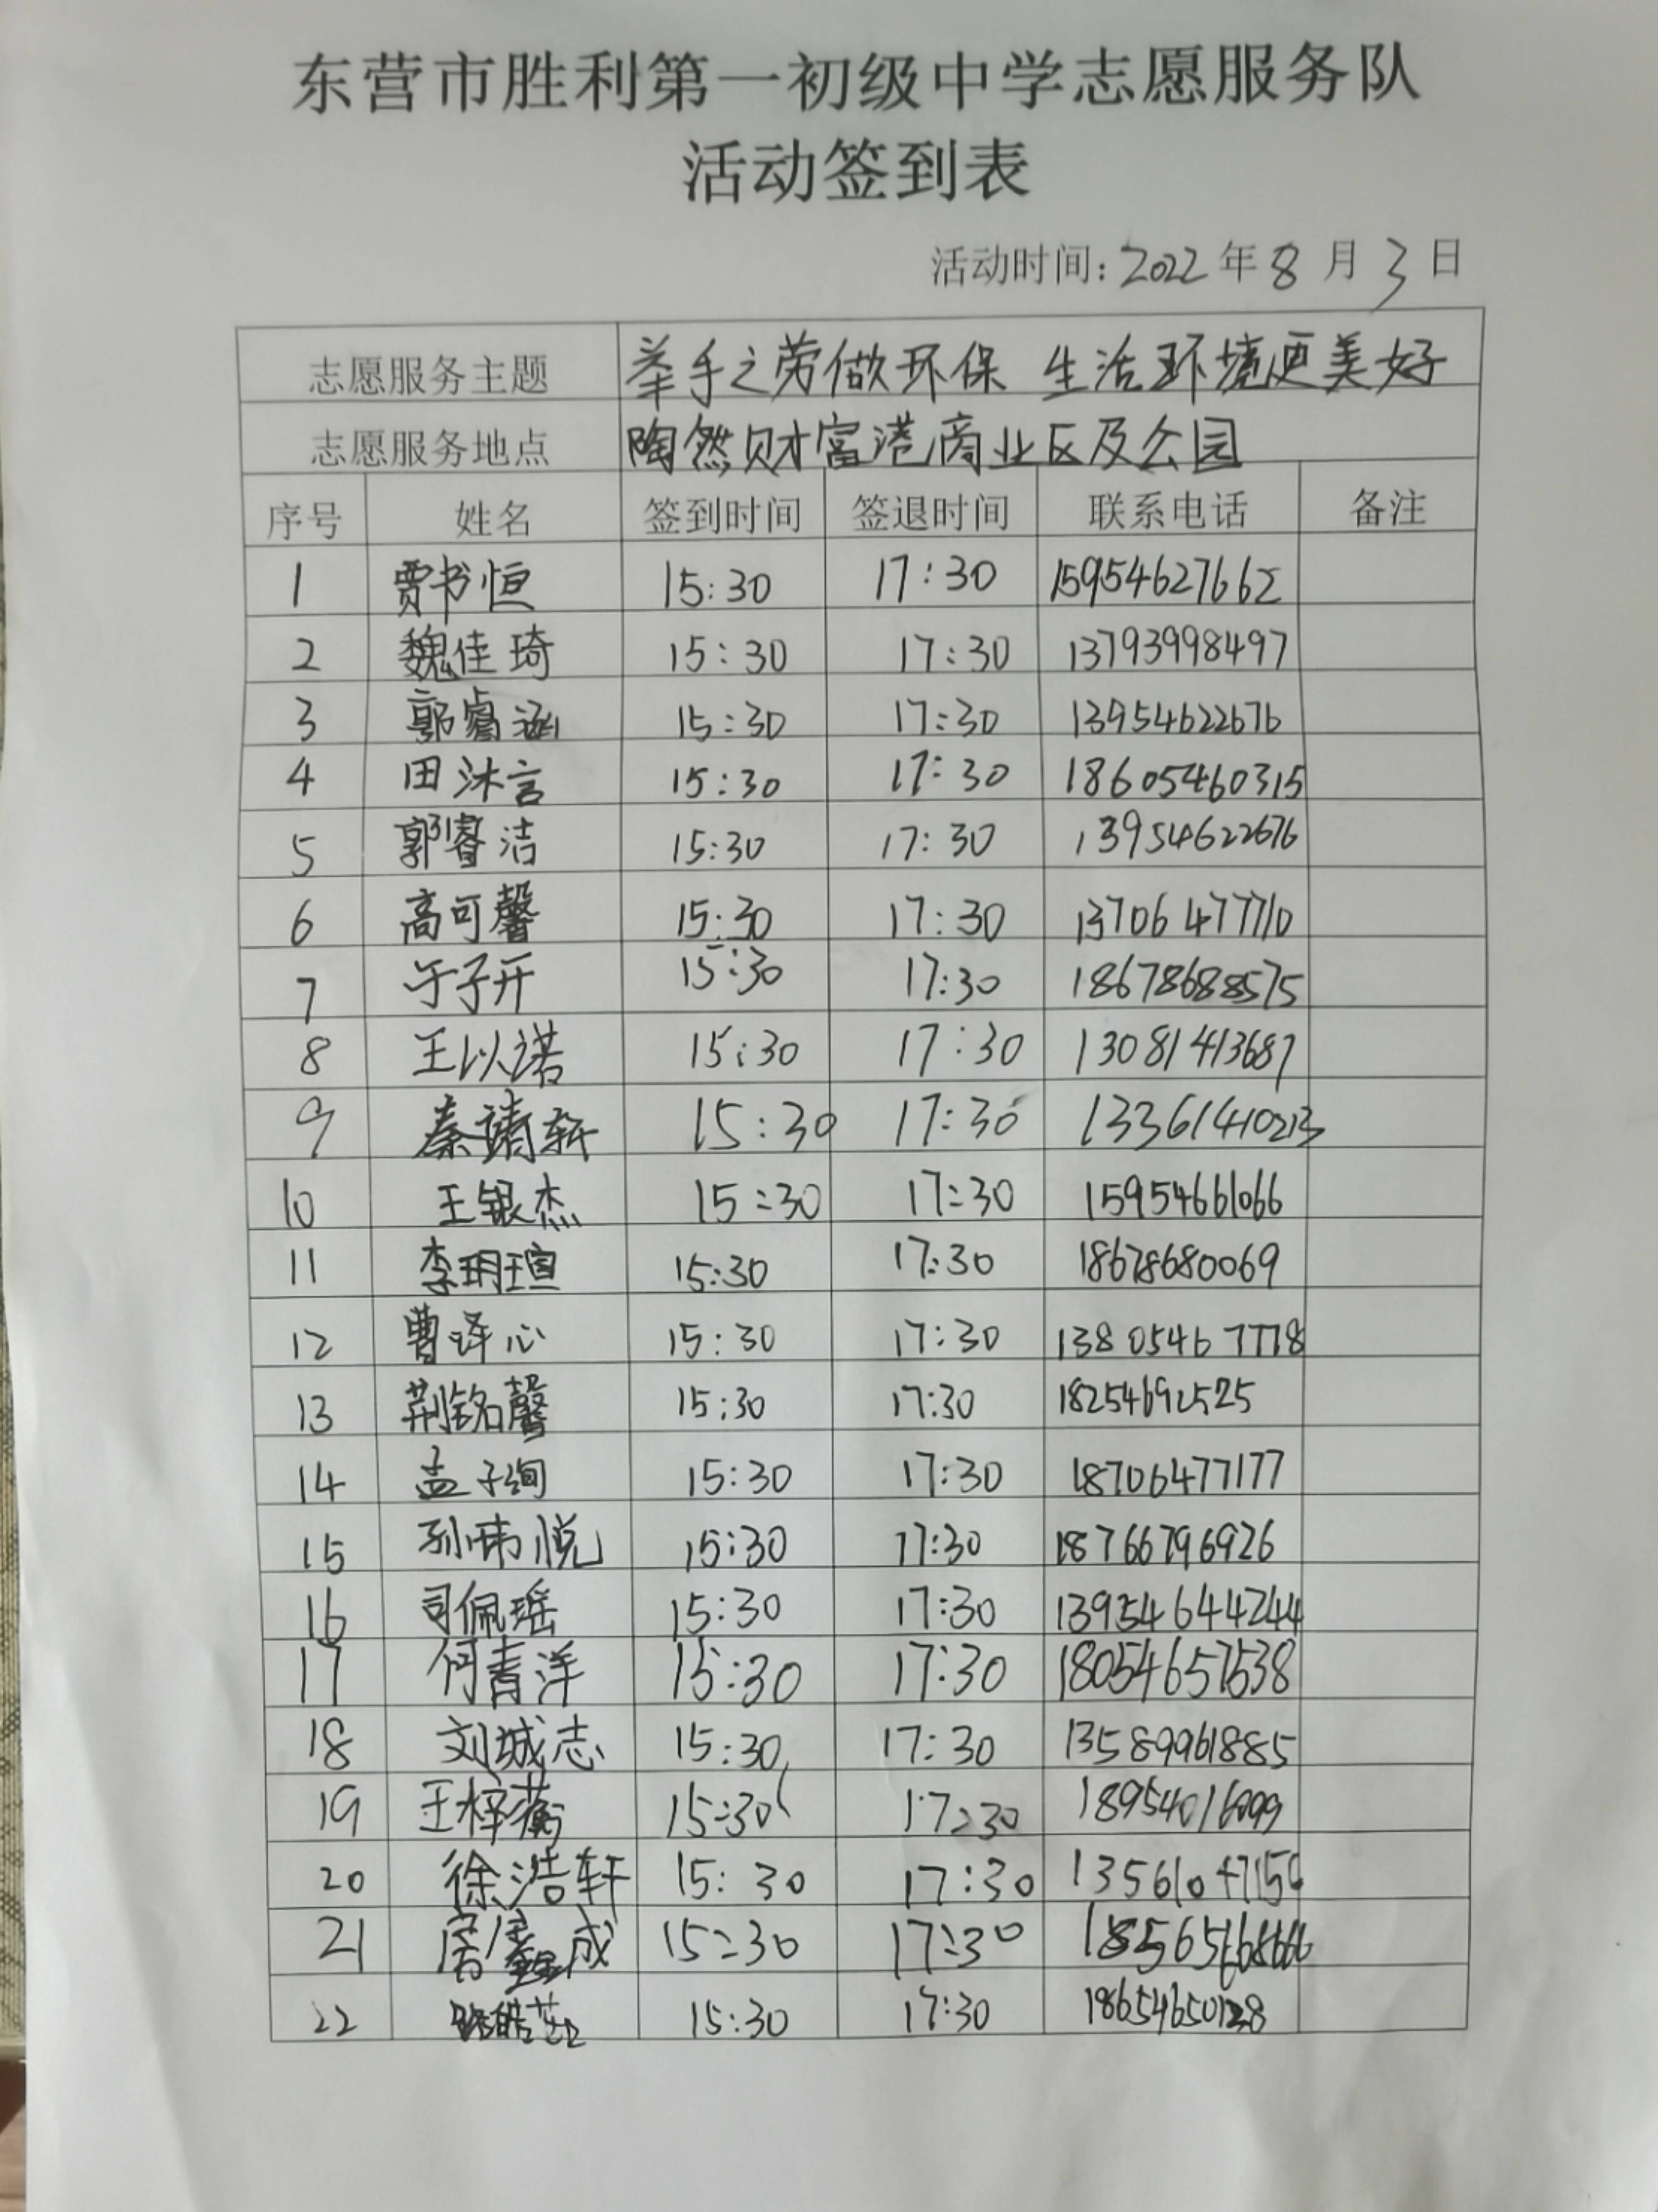 东营市胜利第一初级中学志愿服务队
活动签到表
活动时间：2022年8月3日
志愿服务主题 举手之劳做环保 生活环境更美好
志愿服务地点 陶然财富港商业区及公园
序号 姓名 签到时间 签退时间 联系电话 备注
1 贾书恒 15:30 17:30 15954627662
2 魏佳琦 15:30 17:30 13793998497
3 郭睿涵 15:30 17:30 13954622676
4 田沐言 15:30 17:30 18605460315
5 郭睿洁 15:30 17:30 13954622676
6 高可馨 15:30 17:30 13706477710
7 于子开 15:30 17:30 18678688575
8 王以诺 15:30 17:30 13081413687
9 秦靖轩 15:30 17:30 13361410213
10 王银杰 15:30 17:30 15954661066
11 李玥瑄 15:30 17:30 18678680069
12 曹译心 15:30 17:30 13805467778
13 荆铭馨 15:30 17:30 18254692525
14 孟子绚 15:30 17:30 18706477177
15 孙玮悦 15:30 17:30 18766796926
16 司佩瑶 15:30 17:30 13954644244
17 何青洋 15:30 17:30 18054657538
18 刘城志 15:30 17:30 13589961885
19 王梓蘅 15:30 17:30 18954016099
20 徐浩轩 15:30 17:30
21 成 15:30 17:30
22 15:30 17:30 18654650128